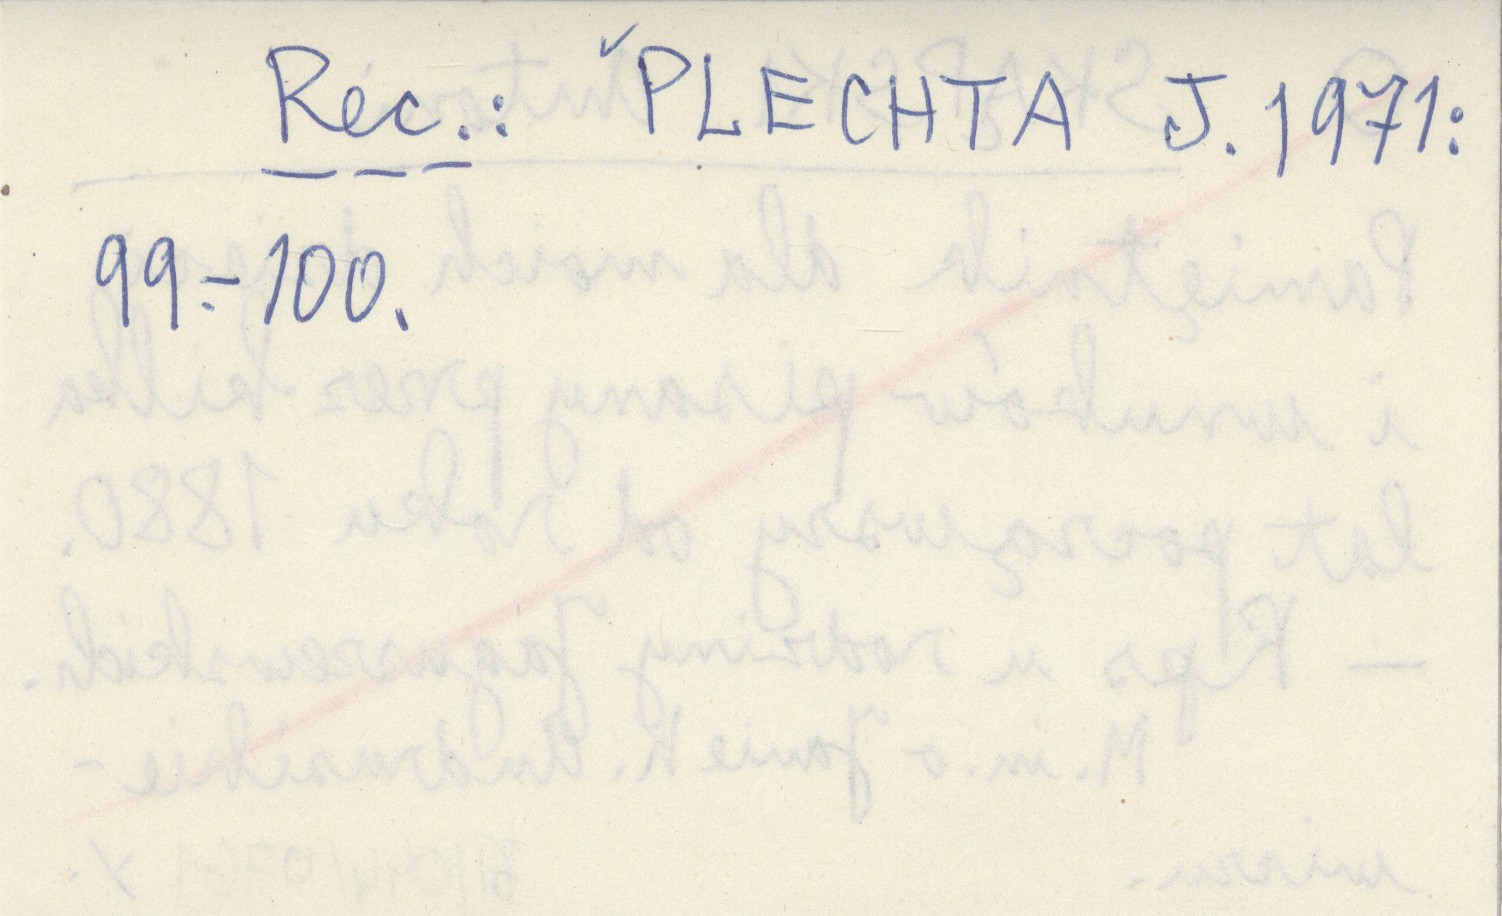 Rec.: ˇPLECHTA J. 1971:
99.-100.